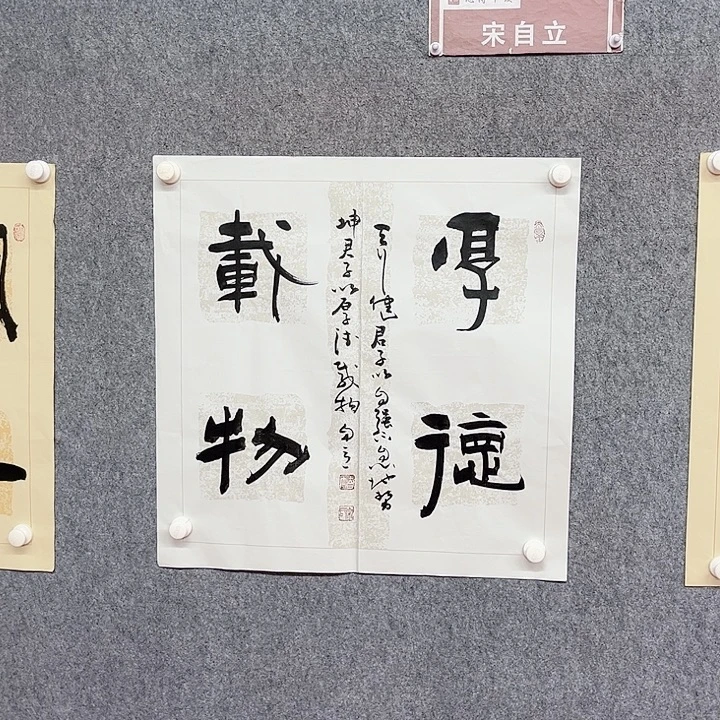 宋自立
厚德
載物
天行健君子以自强不息地势
坤君子以厚德载物 自立